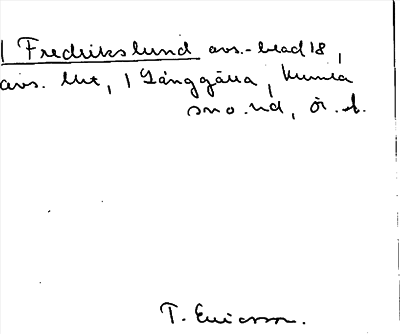 1 Fredrikslund avs.-blad 18,
avs. utr, 1 Långgälla, Kumla
sn o. hd, Ör. l.
T. Ericsson.